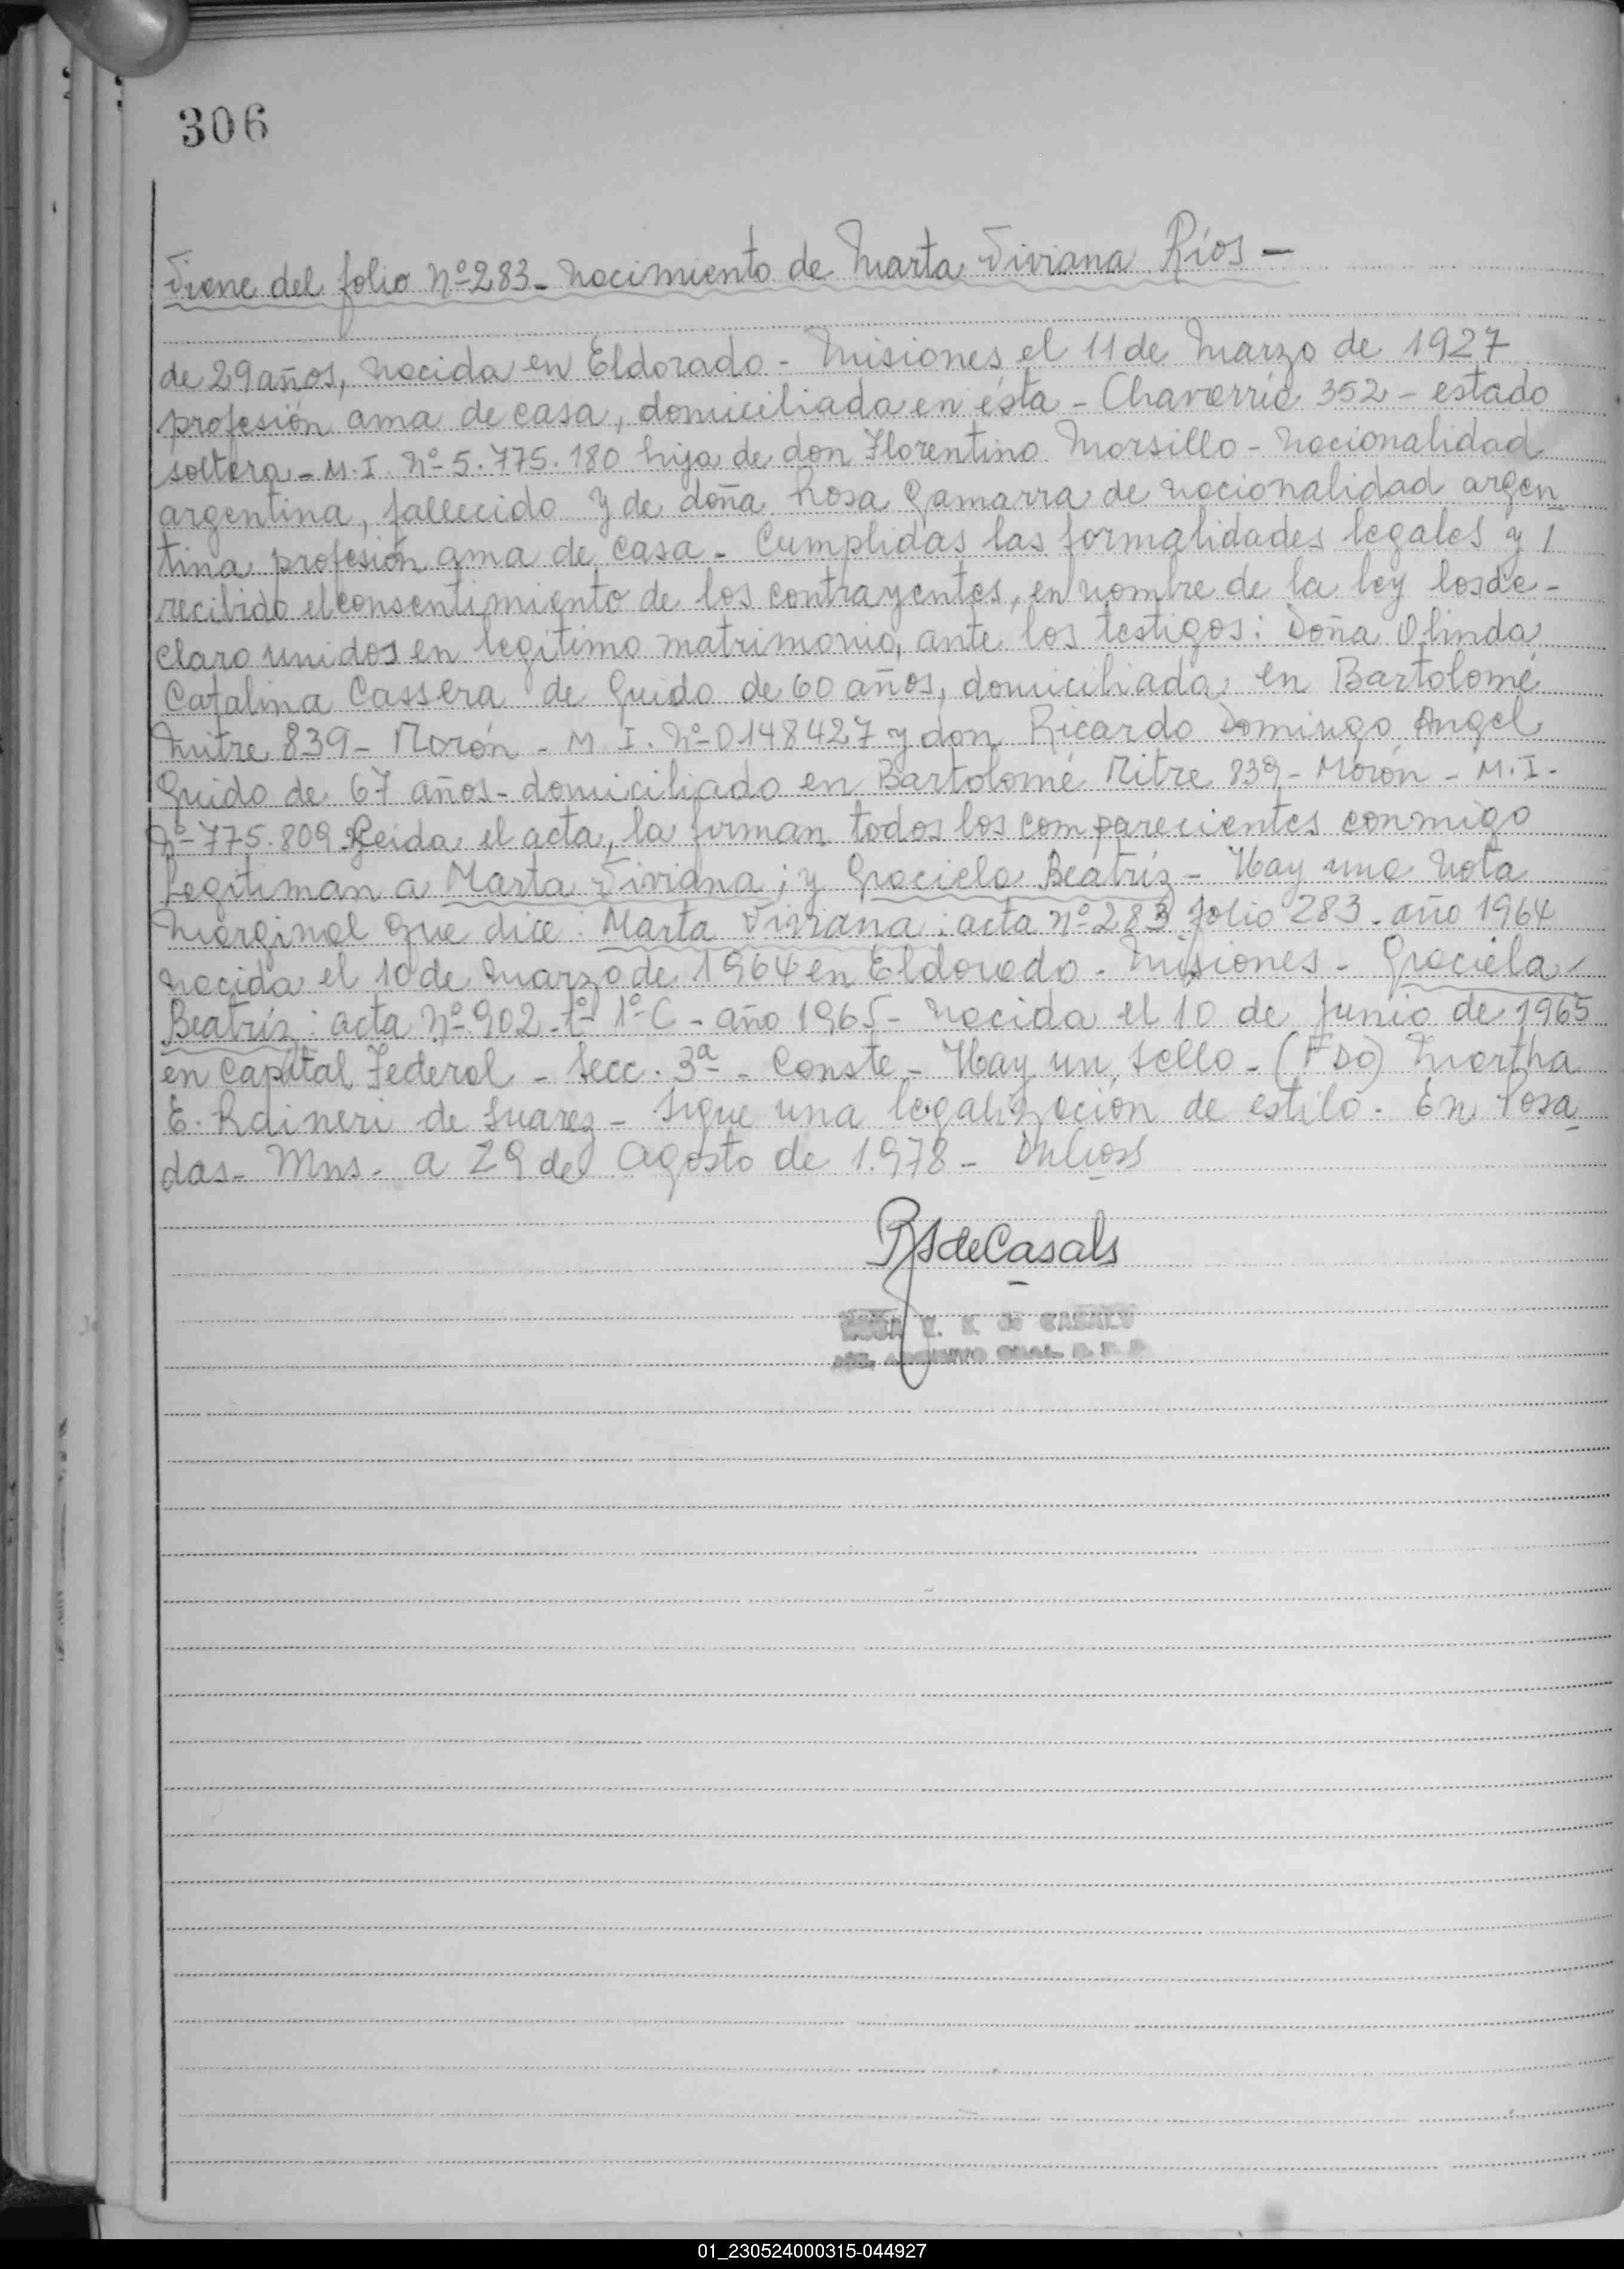 306
Viene del folio Nº 283 - Nacimiento de Marta Viviana Ríos -
de 29 años, nacida en Eldorado - Misiones el 11 de Marzo de 1927
profesión ama de casa, domiciliada en ésta - Chavarría 352 - estado
soltera - M.I. Nº 5.775.180 hija de don Florentino Morsillo - nacionalidad
argentina, fallecido y de doña Rosa Gamarra de nacionalidad argen
tina profesión ama de casa - Cumplidas las formalidades legales y /
recibido el consentimiento de los contrayentes, en nombre de la ley los de -
claro unidos en legítimo matrimonio, ante los testigos: Doña Olinda
Catalina Cassera de Guido de 60 años, domiciliada en Bartolomé
Mitre 839 - Morón - M.I. Nº 0148427 y don Ricardo Domingo Angel
Guido de 67 años - domiciliado en Bartolomé Mitre 839 - Morón - M.I -
Nº 775.809 Leida el acta, la firman todos los comparecientes conmigo
Legitiman a Marta Viviana; y Graciela Beatríz - Hay una Nota
Marginal que dice: Marta Viviana: acta Nº 283 folio 283 - año 1964
nacida el 10 de Marzo de 1964 en Eldorado - Misiones - Graciela
Beatríz: acta Nº 902 - tº 1º C - año 1965 - nacida el 10 de Junio de 1965
en Capital Federal - Secc. 3ª - Conste - Hay un sello - (FDO) Martha
E. Raineri de Suarez - Sigue una legalización de estilo - En Posa
das - Mns - a 29 de Agosto de 1.978 -
RSdeCasals
de CASALS
ARCHIVO GRAL. R. P. P.
01_230524000315-044927